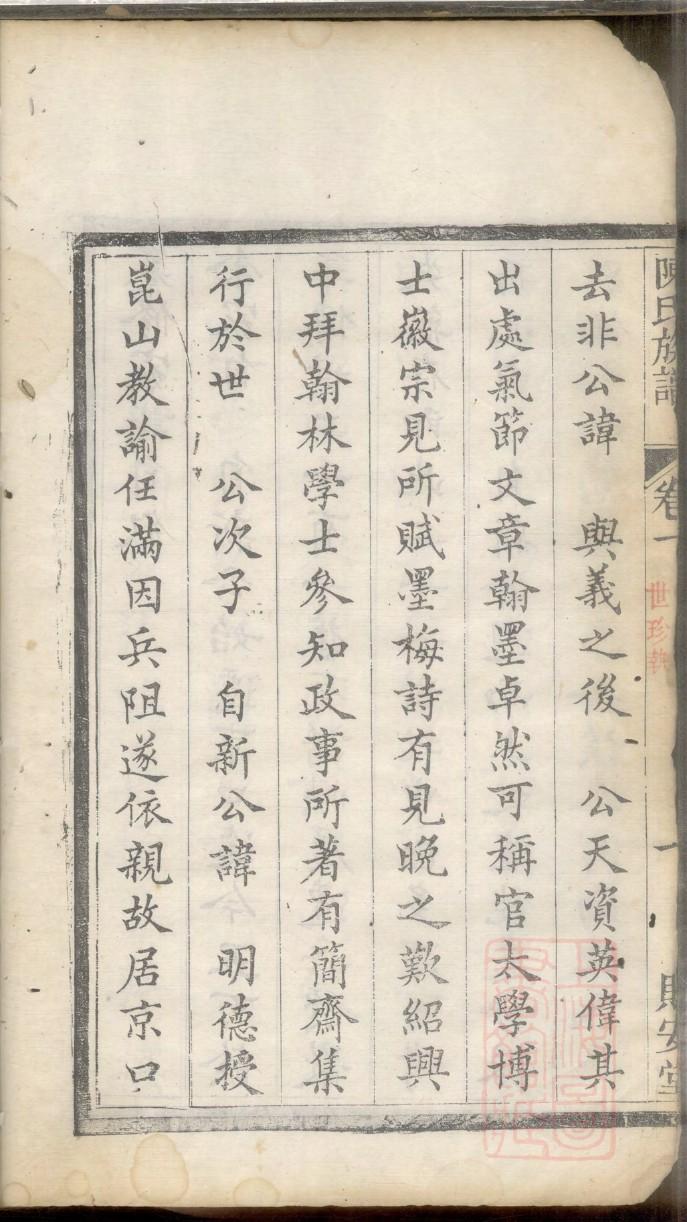 陳氏族譜 卷一 世珍執 一 貽安堂
去非公諱 與義之後 公天資英偉其
出處氣節文章翰墨卓然可稱官太學博
士徽宗見所賦墨梅詩有見晚之歎紹興
中拜翰林學士參知政事所著有簡齋集
行於世 公次子 自新公諱 明德授
崑山教諭任滿因兵阻遂依親故居京口